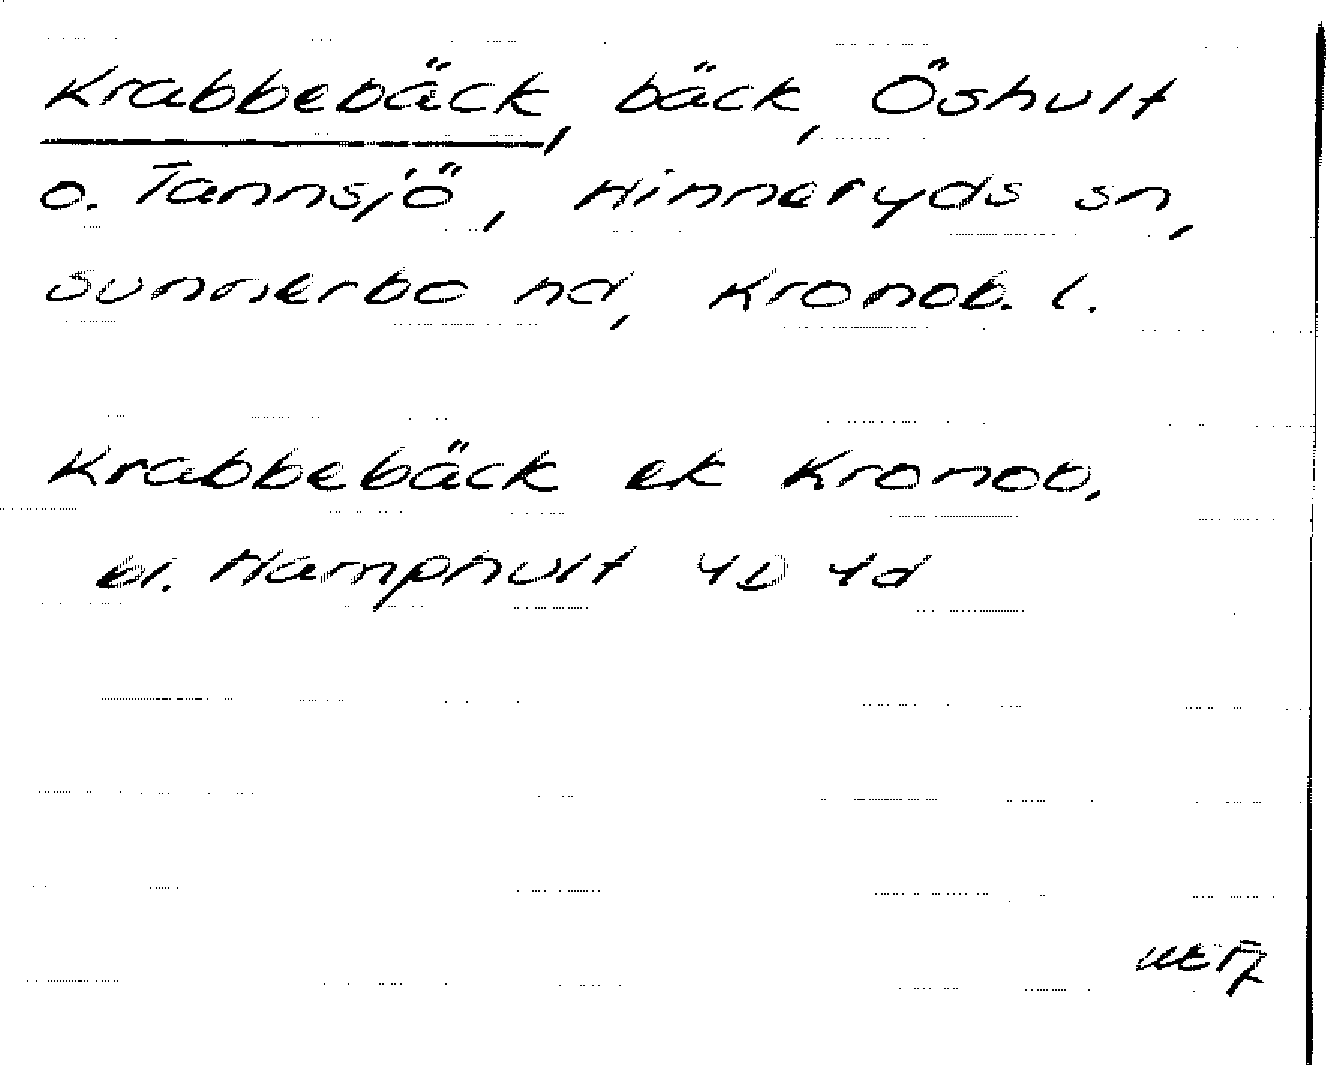 Krabbebäck, bäck, Öshult
o. Tannsjö, Hinneryds sn,
Sunnerbo hd, Kronob. l.
Krabbebäck ek Kronob,
bl. Hamphult 4D 4d